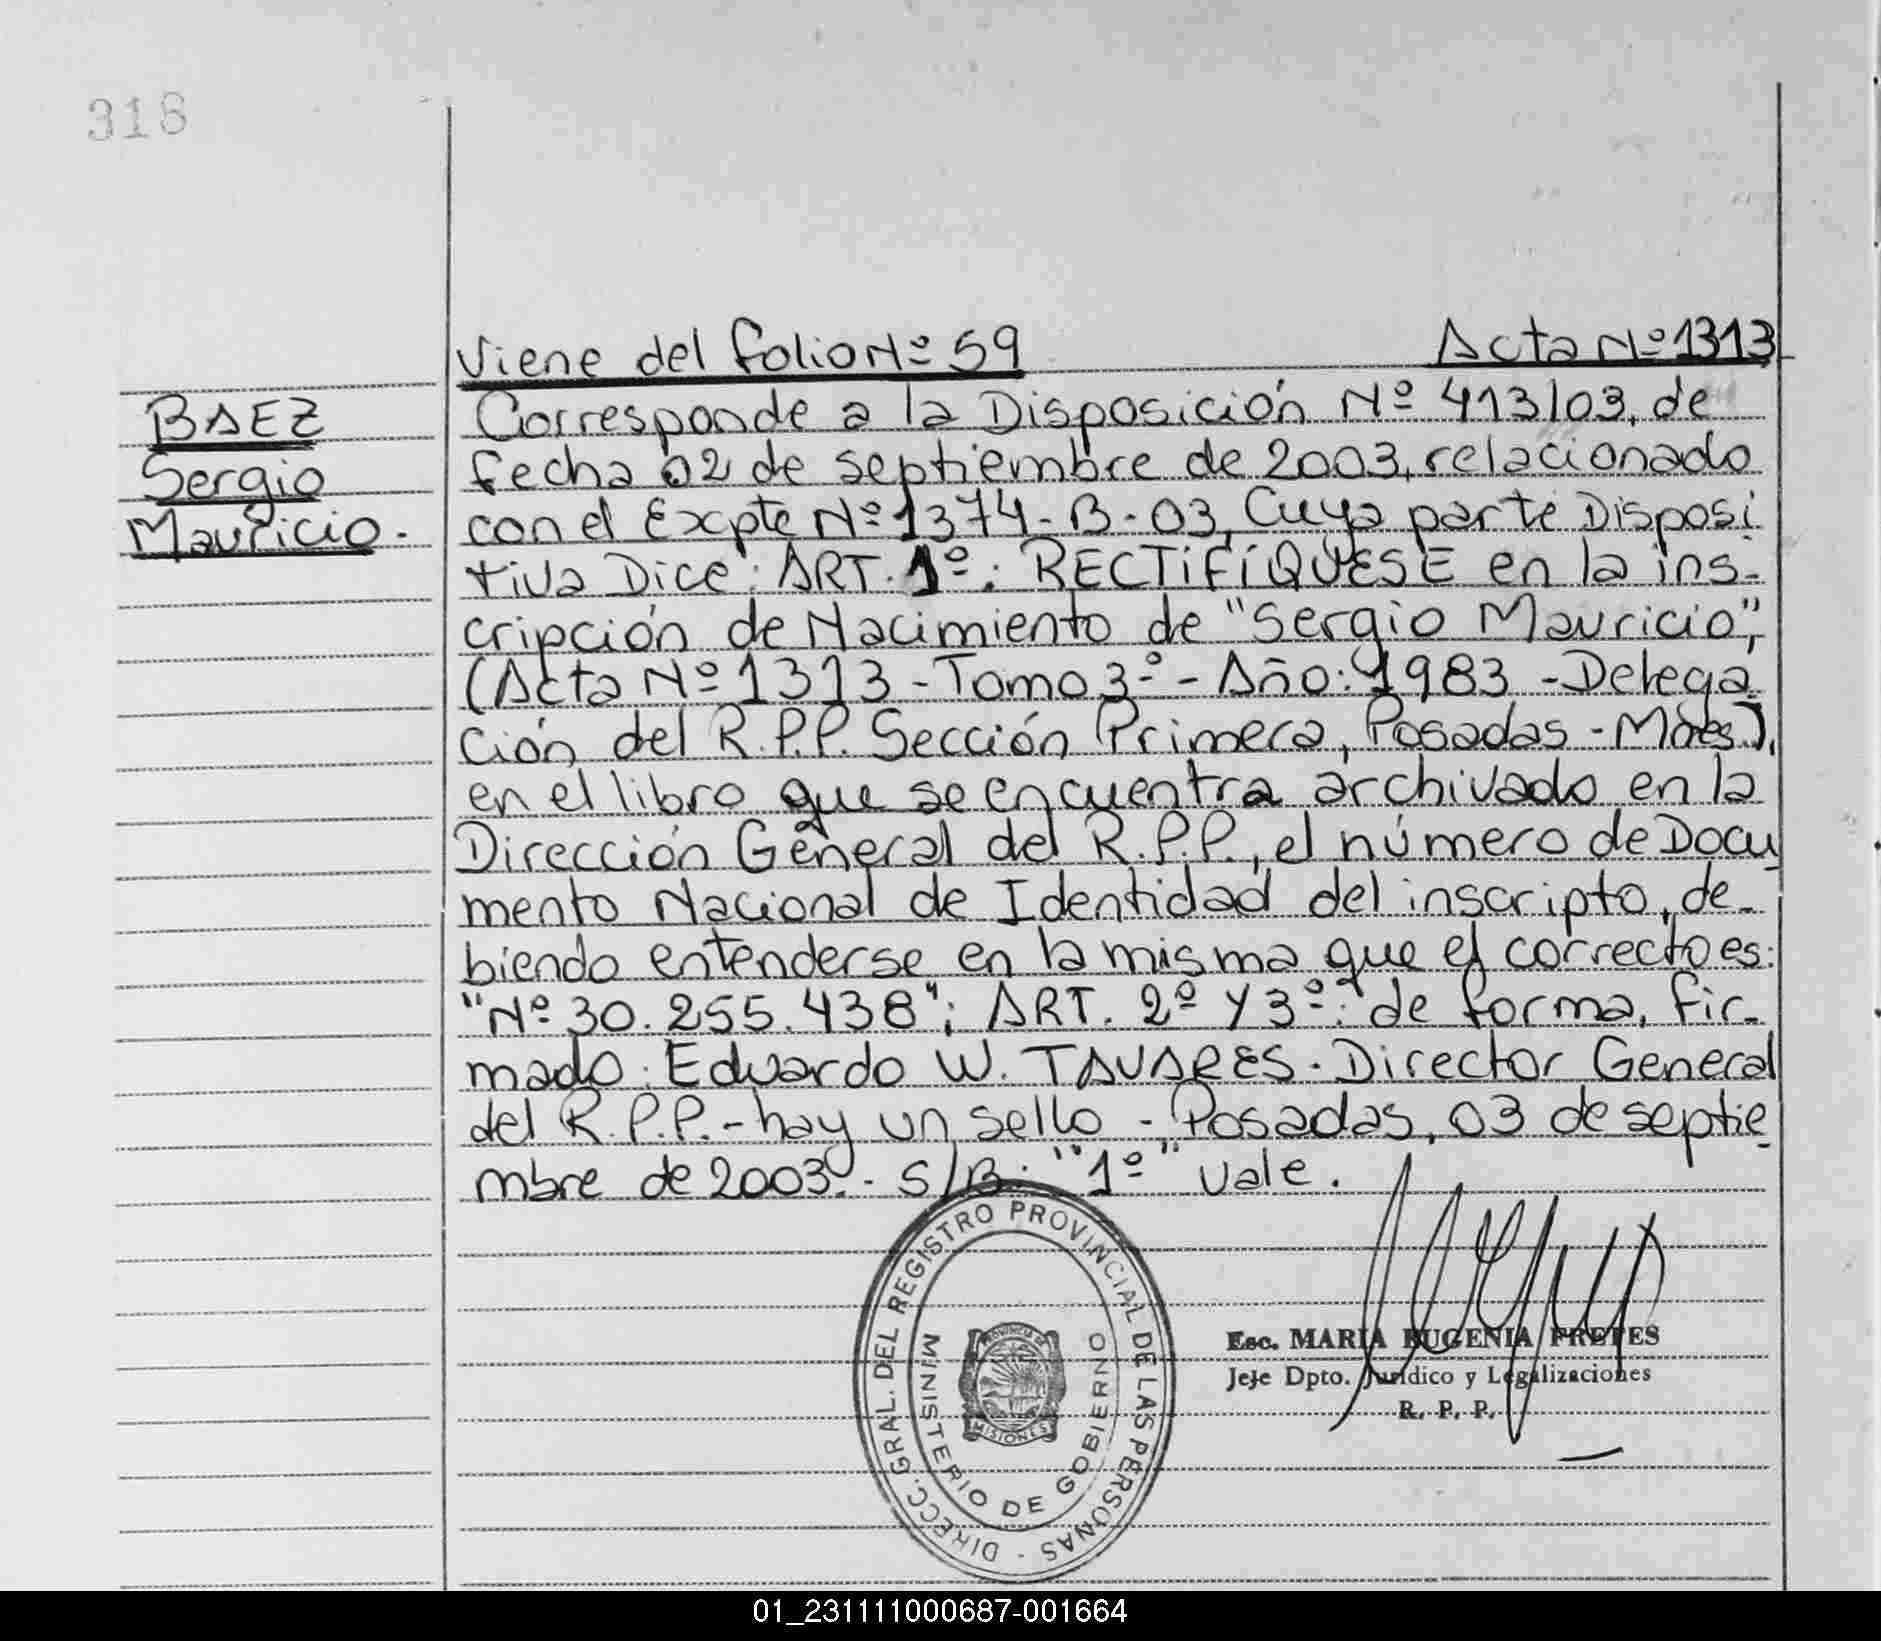 318
Viene del folio Nº 59 Acta Nº 1313
BAEZ
Sergio
Mauricio.-
Corresponde a la Disposición Nº 413/03, de
fecha 02 de septiembre de 2003, relacionado
con el Expte Nº 1374-B-03, Cuya parte Disposi
tiva Dice: ART. 1º: RECTIFÍQUESE en la ins-
cripción de Nacimiento de "Sergio Mauricio",
(Acta Nº 1313 - Tomo 3º - Año: 1983 - Delega
ción del R.P.P. Sección Primera, Posadas - Mnes.),
en el libro que se encuentra archivado en la
Dirección General del R.P.P., el número de Docu
mento Nacional de Identidad del inscripto, de-
biendo entenderse en la misma que el correcto es:
"Nº 30.255.438"; ART. 2º y 3º: de forma, Fir-
mado: Eduardo W. TAVARES. Director General
del R.P.P.- hay un sello -, Posadas, 03 de septie
mbre de 2003.- S/B: "1º" vale.
DIRECC. GRAL. DEL REGISTRO PROVINCIAL DE LAS PERSONAS -
MINISTERIO DE GOBIERNO
PROVINCIA DE
MISIONES
Esc. MARIA EUGENIA PRETES
Jefe Dpto. Jurídico y Legalizaciones
R. P. P.
01_231111000687-001664